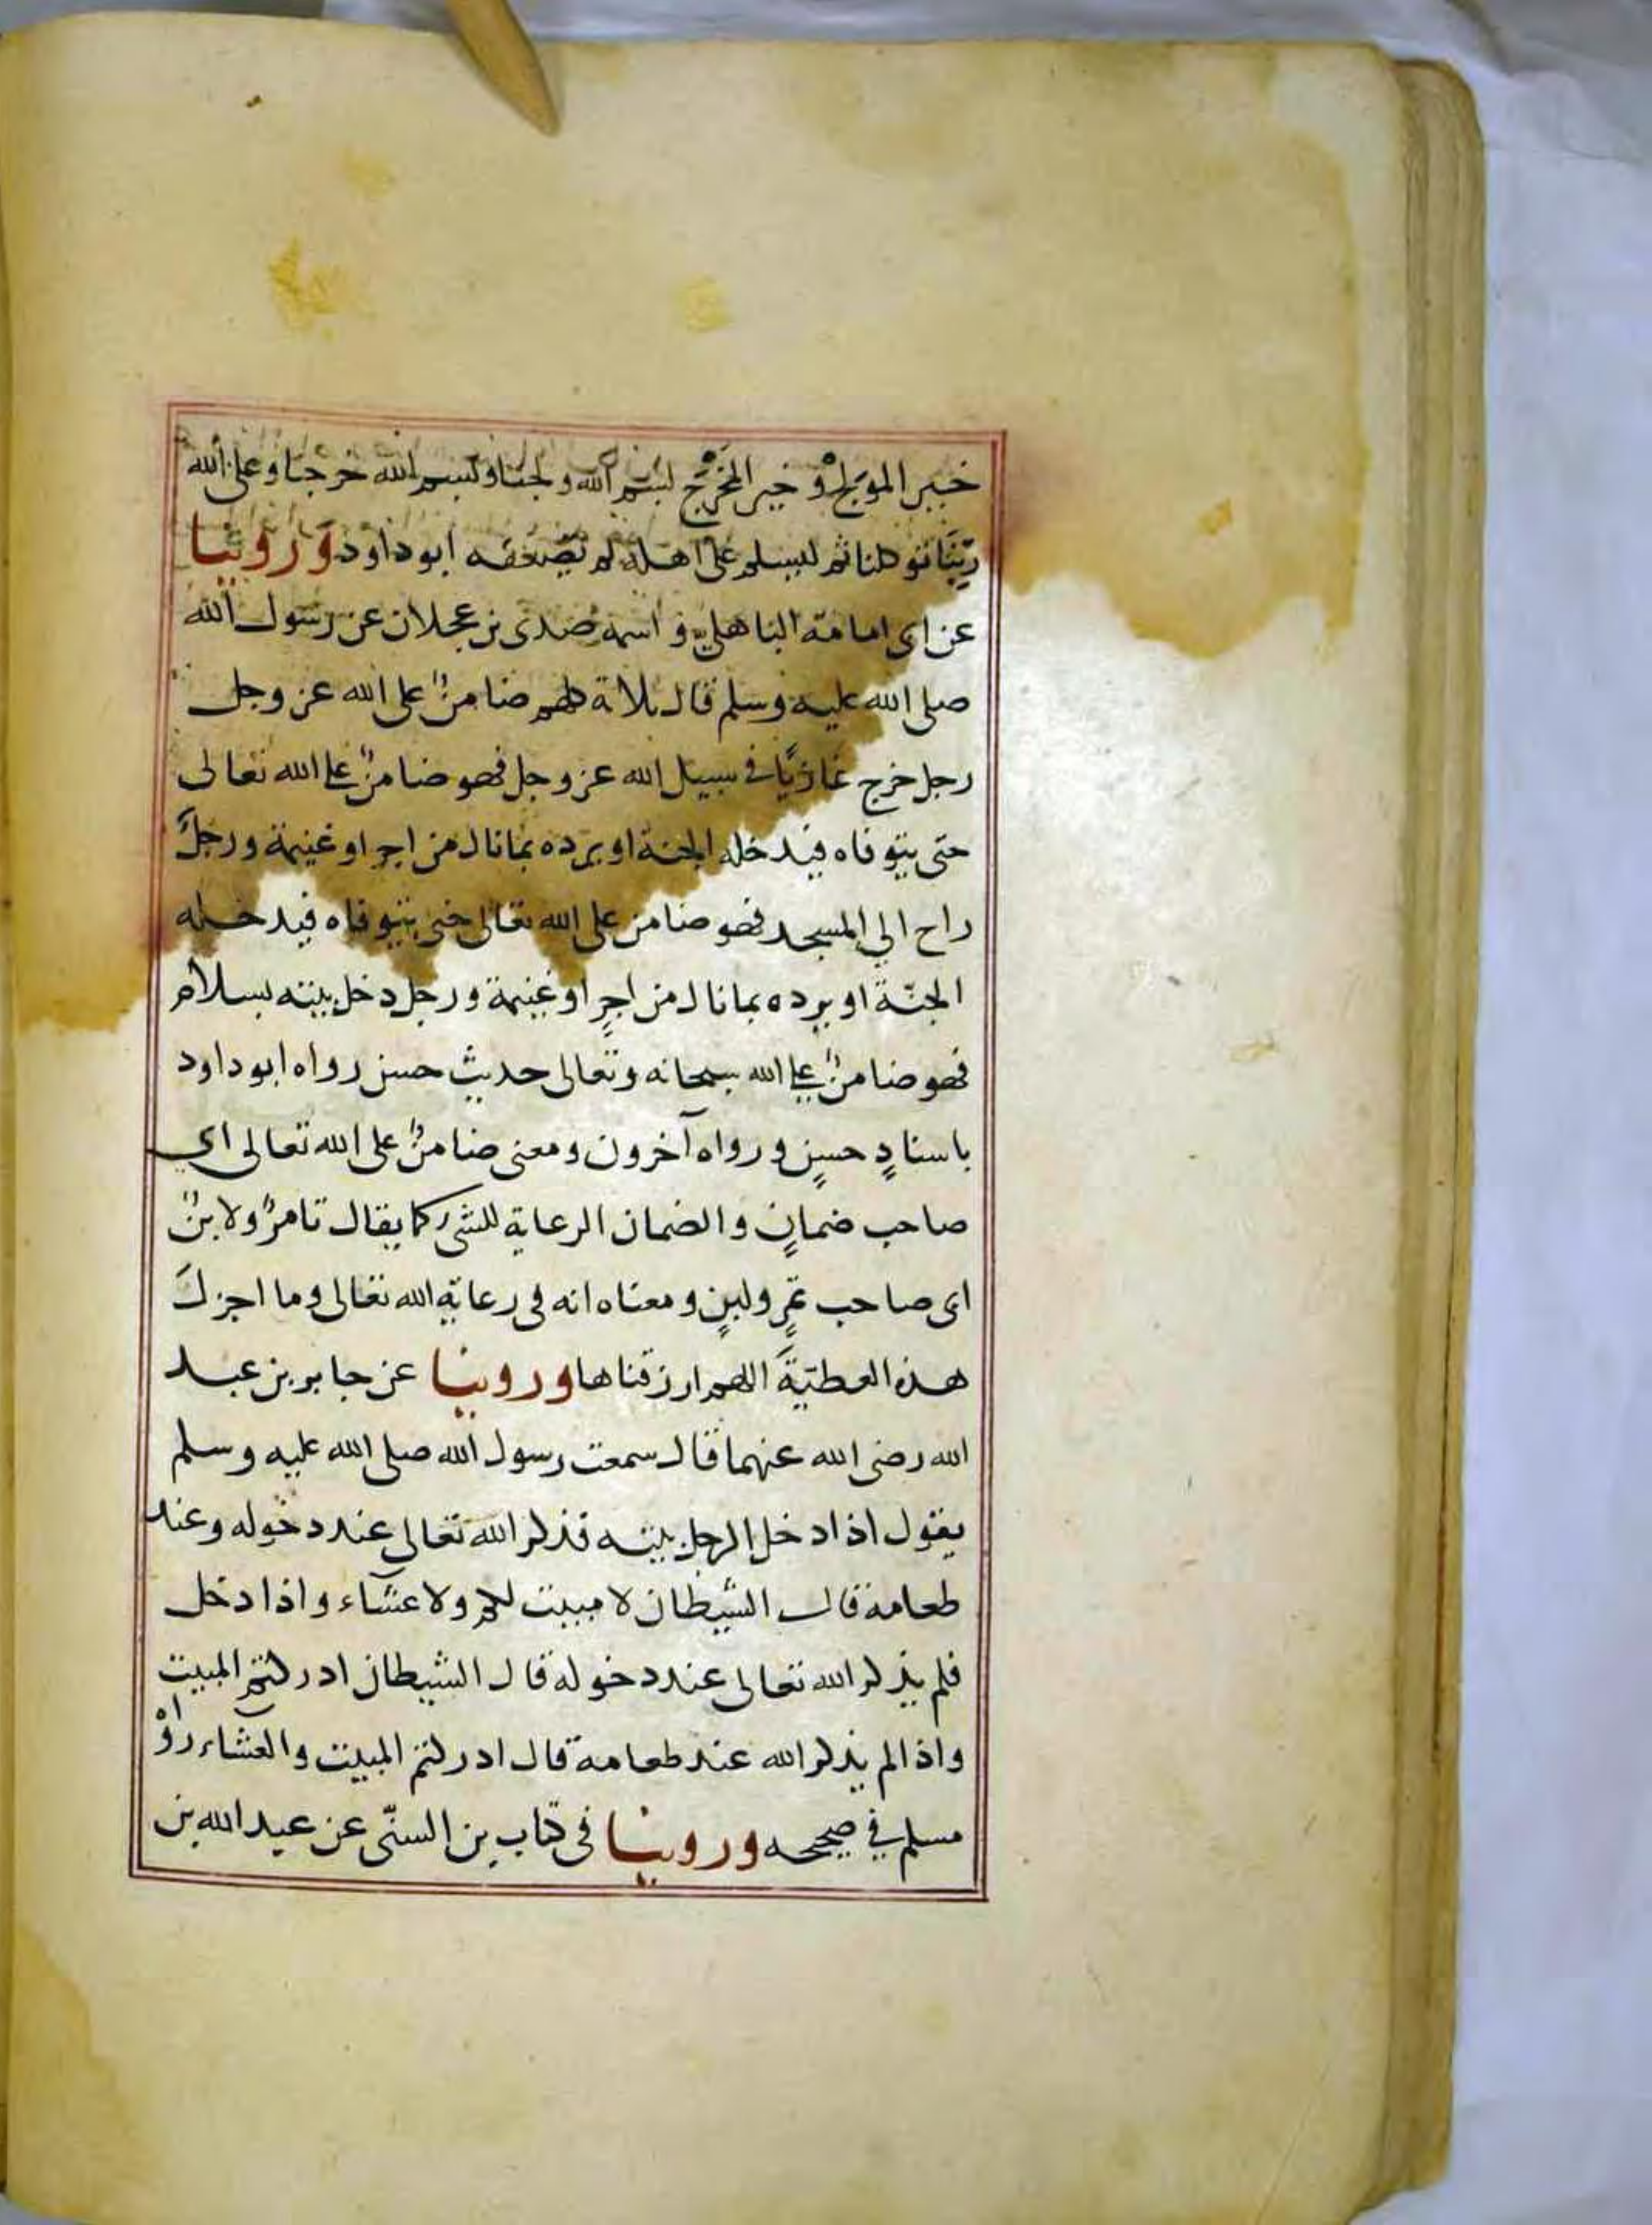 خير المولج وخير المخرج لبسم الله ولجنا ولبسم الله خرجنا وعلى الله
ربنا توكلنا ثم ليسلم على اهله لم يضعفه ابو داود وروينا
عن ابي امامة الباهلي و اسمه صدى بن عجلان عن رسول الله
صلى الله عليه وسلم قال ثلاثة كلهم ضامنٌ على الله عز وجل
رجل خرج غازيًا في سبيل الله عز وجل فهو ضامنٌ على الله تعالى
حتى يتوفاه فيدخله الجنة او يرده بما نال من اجر او غنيمة ورجلٌ
راح الي المسجد فهو ضامن على الله تعالى حتى يتوفاه فيدخله
الجنّة او يرده بما نال من اجرٍ او غنيمة ورجل دخل بيته بسلام
فهو ضامنٌ على الله سبحانه وتعالى حديث حسن رواه ابو داود
باسنادٍ حسنٍ ورواه آخرون ومعنى ضامنٌ على الله تعالى اي
صاحب ضمانٍ والضمان الرعاية للشئ كما يقال تامرٌ ولابنٌ
اى صاحب تمرٍ ولبنٍ ومعناه انه في رعاية الله تعالى وما اجزل
هذه العطيّةَ اللهم ارزقناها وروينا عن جابر بن عبد
الله رضى الله عنهما قال سمعت رسول الله صلى الله عليه وسلم
يقول اذا دخل الرجل بيته فذكر الله تعالى عند دخوله وعند
طعامه قال الشيطان لا مبيت لكم ولا عشاء واذا دخل
فلم يذكر الله تعالى عند دخوله قال الشيطان ادركتم المبيت
واذا لم يذكر الله عند طعامه قال ادركتم المبيت والعشاء رواه
مسلم في صحيحه وروينا في كتاب بن السنّى عن عبد الله بن